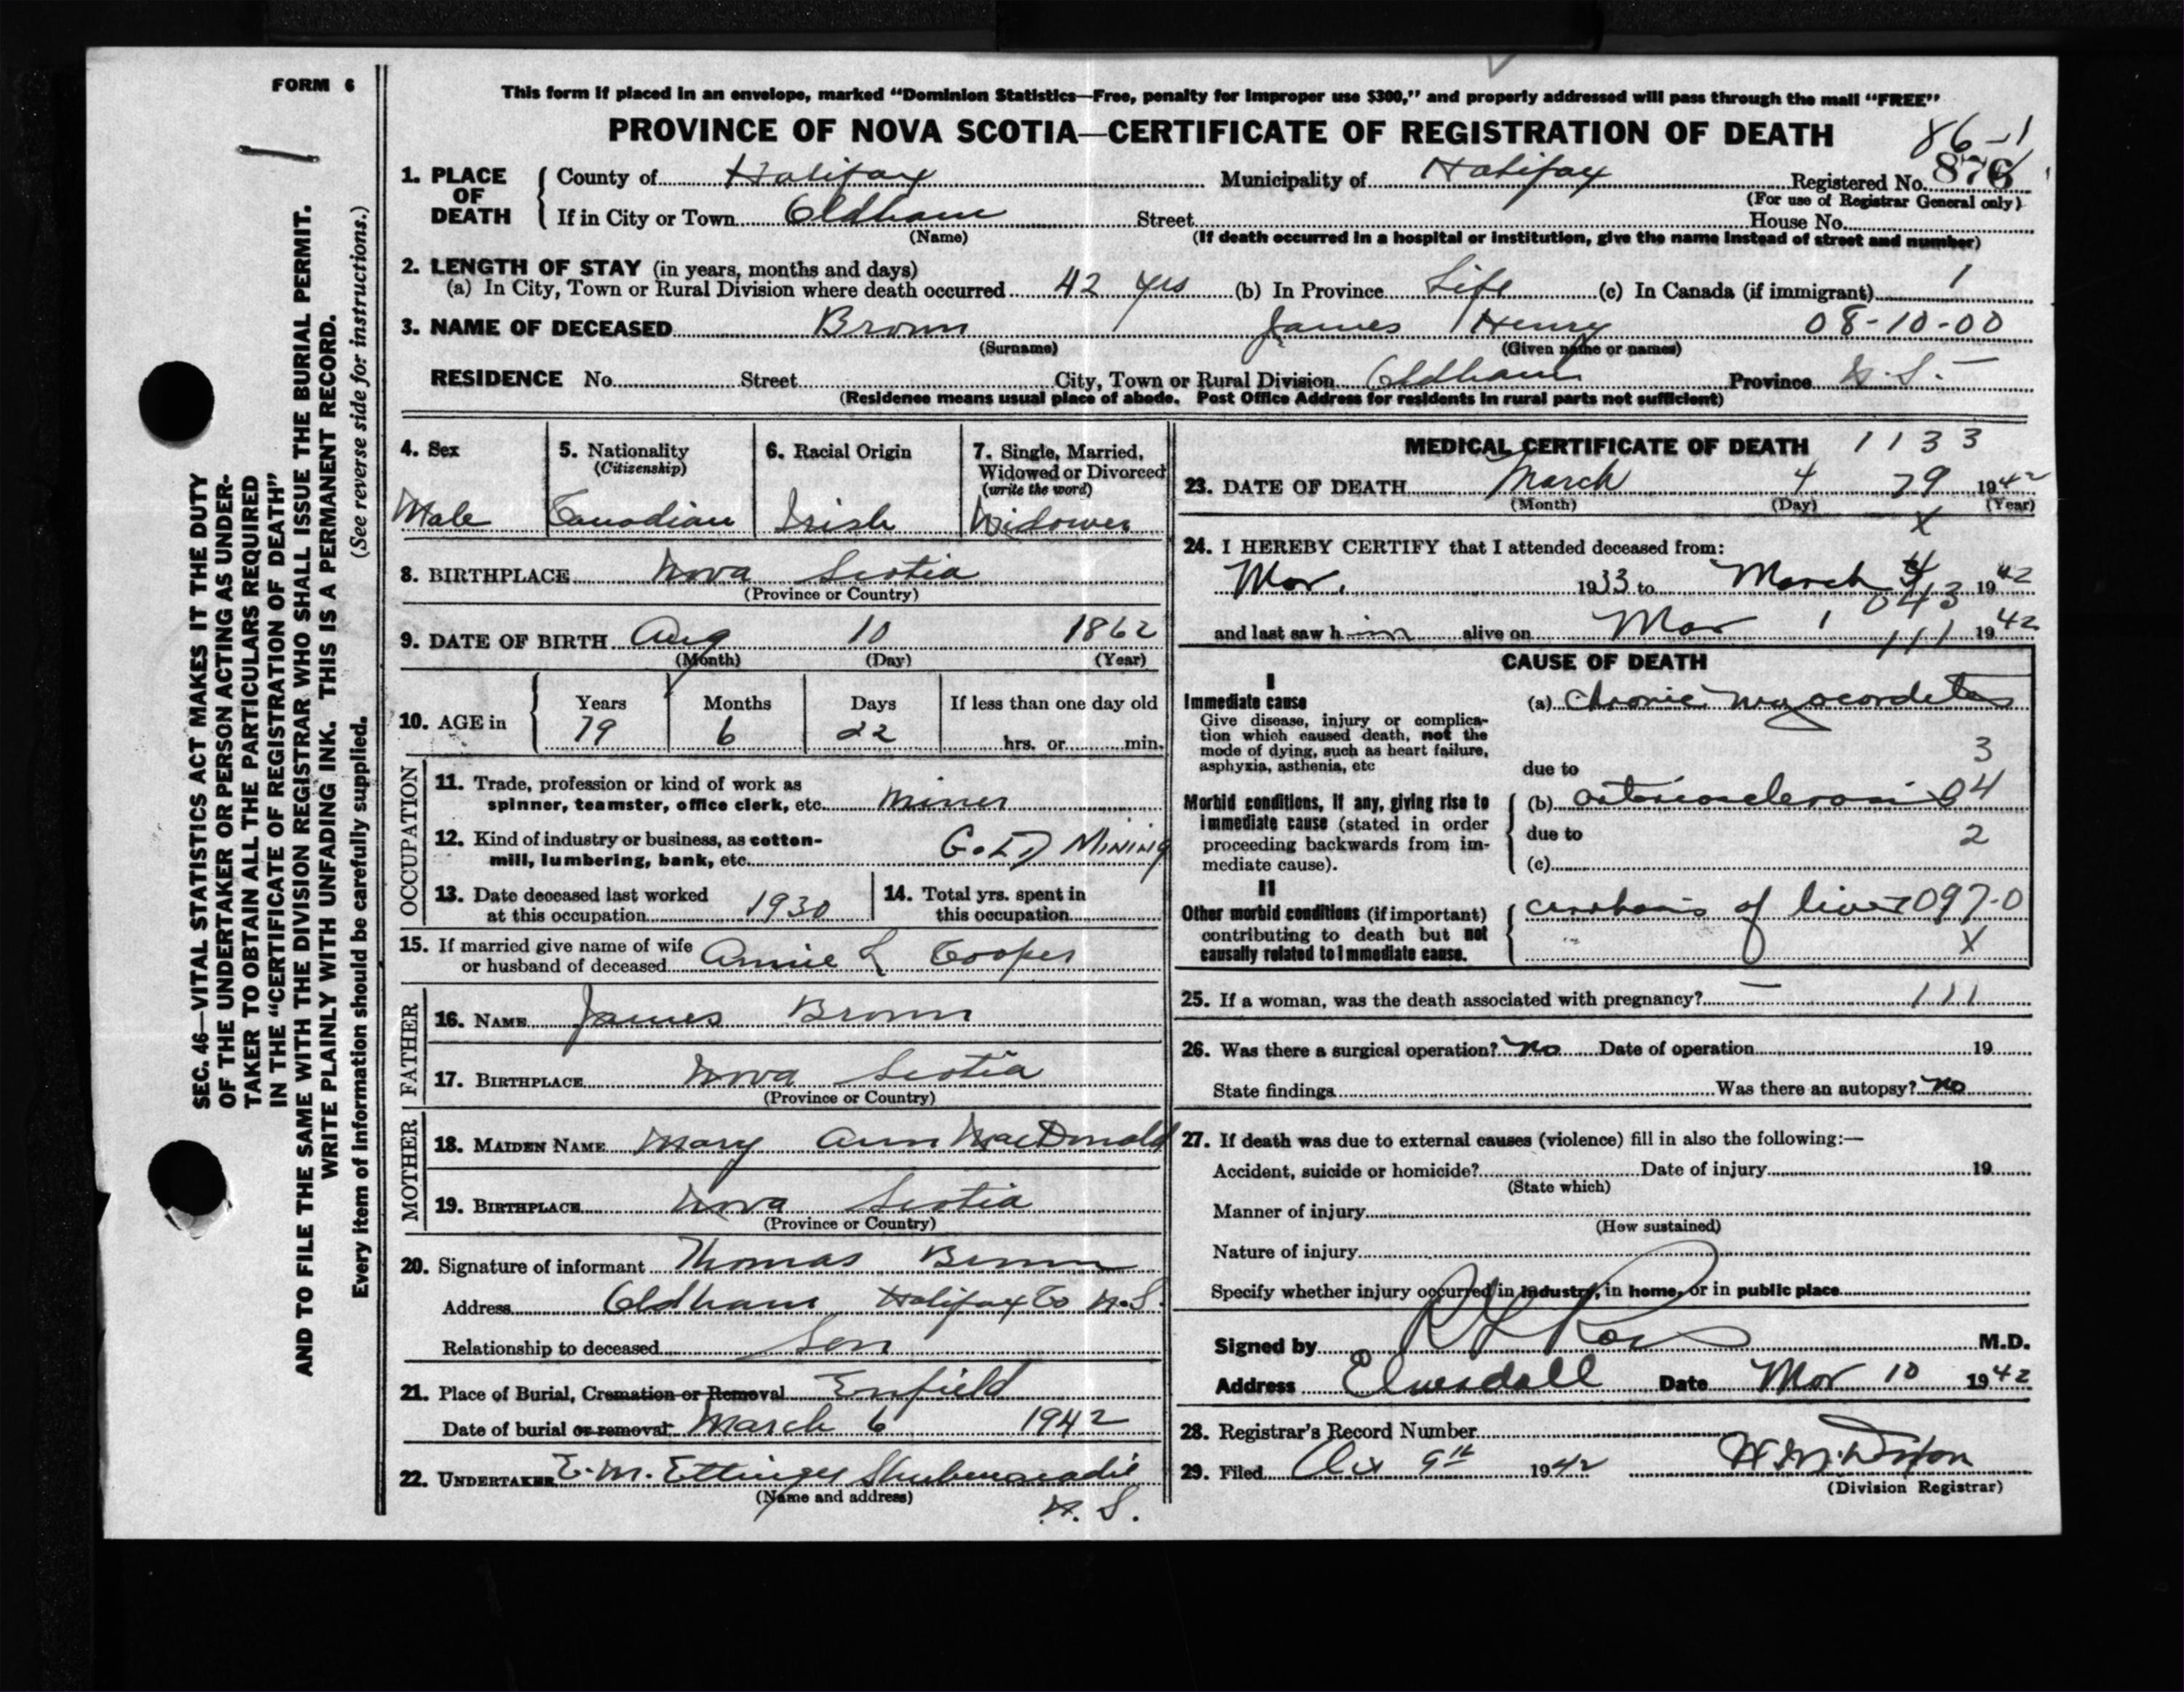 FORM 6
SEC. 46—VITAL STATISTICS ACT MAKES IT THE DUTY
OF THE UNDERTAKER OR PERSON ACTING AS UNDER-
TAKER TO OBTAIN ALL THE PARTICULARS REQUIRED
IN THE "CERTIFICATE OF REGISTRATION OF DEATH"
AND TO FILE THE SAME WITH THE DIVISION REGISTRAR WHO SHALL ISSUE THE BURIAL PERMIT.
WRITE PLAINLY WITH UNFADING INK. THIS IS A PERMANENT RECORD.
Every item of information should be carefully supplied. (See reverse side for instructions.)
This form if placed in an envelope, marked "Dominion Statistics—Free, penalty for improper use $300," and properly addressed will pass through the mail "FREE"
PROVINCE OF NOVA SCOTIA—CERTIFICATE OF REGISTRATION OF DEATH
86-1
1. PLACE OF DEATH County of Halifax Municipality of Halifax Registered No. 876
(For use of Registrar General only)
If in City or Town Oldham Street House No.
(Name) (If death occurred in a hospital or institution, give the name instead of street and number)
2. LENGTH OF STAY (in years, months and days)
(a) In City, Town or Rural Division where death occurred 42 yrs (b) In Province Life (c) In Canada (if immigrant) 1
3. NAME OF DECEASED Brown James Henry 08-10-00
(Surname) (Given name or names)
RESIDENCE No. Street City, Town or Rural Division Oldham Province N.S.
(Residence means usual place of abode. Post Office Address for residents in rural parts not sufficient)
4. Sex 5. Nationality 6. Racial Origin 7. Single, Married,
(Citizenship) Widowed or Divorced
(write the word)
Male Canadian Irish Widower
8. BIRTHPLACE Nova Scotia
(Province or Country)
9. DATE OF BIRTH Aug 10 1862
(Month) (Day) (Year)
10. AGE in Years Months Days If less than one day old
79 6 22 hrs. or min.
OCCUPATION
11. Trade, profession or kind of work as
spinner, teamster, office clerk, etc. Miner
12. Kind of industry or business, as cotton-
mill, lumbering, bank, etc. GOLD MINING
13. Date deceased last worked
at this occupation 1930
14. Total yrs. spent in
this occupation
15. If married give name of wife
or husband of deceased Annie L Cooper
FATHER
16. NAME James Brown
17. BIRTHPLACE Nova Scotia
(Province or Country)
MOTHER
18. MAIDEN NAME Mary Ann MacDonald
19. BIRTHPLACE Nova Scotia
(Province or Country)
20. Signature of informant Thomas Brown
Address Oldham Halifax Co N.S.
Relationship to deceased Son
21. Place of Burial, Cremation or Removal Enfield
Date of burial or removal March 6 1942
22. UNDERTAKER E. M. Ettinger Shubenacadie
(Name and address) N. S.
MEDICAL CERTIFICATE OF DEATH 1133
23. DATE OF DEATH March 4 79 1942
(Month) (Day) (Year)
X
24. I HEREBY CERTIFY that I attended deceased from:
Mar. 1933 to March 4 1942
043
and last saw him alive on Mar 1 1942
111
CAUSE OF DEATH
I
Immediate cause (a) chronic myocarditis
Give disease, injury or complica-
tion which caused death, not the
mode of dying, such as heart failure,
asphyxia, asthenia, etc
3
due to
Morbid conditions, if any, giving rise to
immediate cause (stated in order
proceeding backwards from im-
mediate cause).
(b) arteriosclerosis 04
due to 2
(c)
II
Other morbid conditions (if important)
contributing to death but not
causally related to immediate cause.
cirrhosis of liver 097-0
X
25. If a woman, was the death associated with pregnancy? — 111
26. Was there a surgical operation? no Date of operation 19
State findings Was there an autopsy? no
27. If death was due to external causes (violence) fill in also the following:—
Accident, suicide or homicide? Date of injury 19
(State which)
Manner of injury
(How sustained)
Nature of injury
Specify whether injury occurred in industry, in home, or in public place
Signed by M.D.
Address Elmsdale Date Mar 10 1942
28. Registrar's Record Number
29. Filed 9th 1942
(Division Registrar)